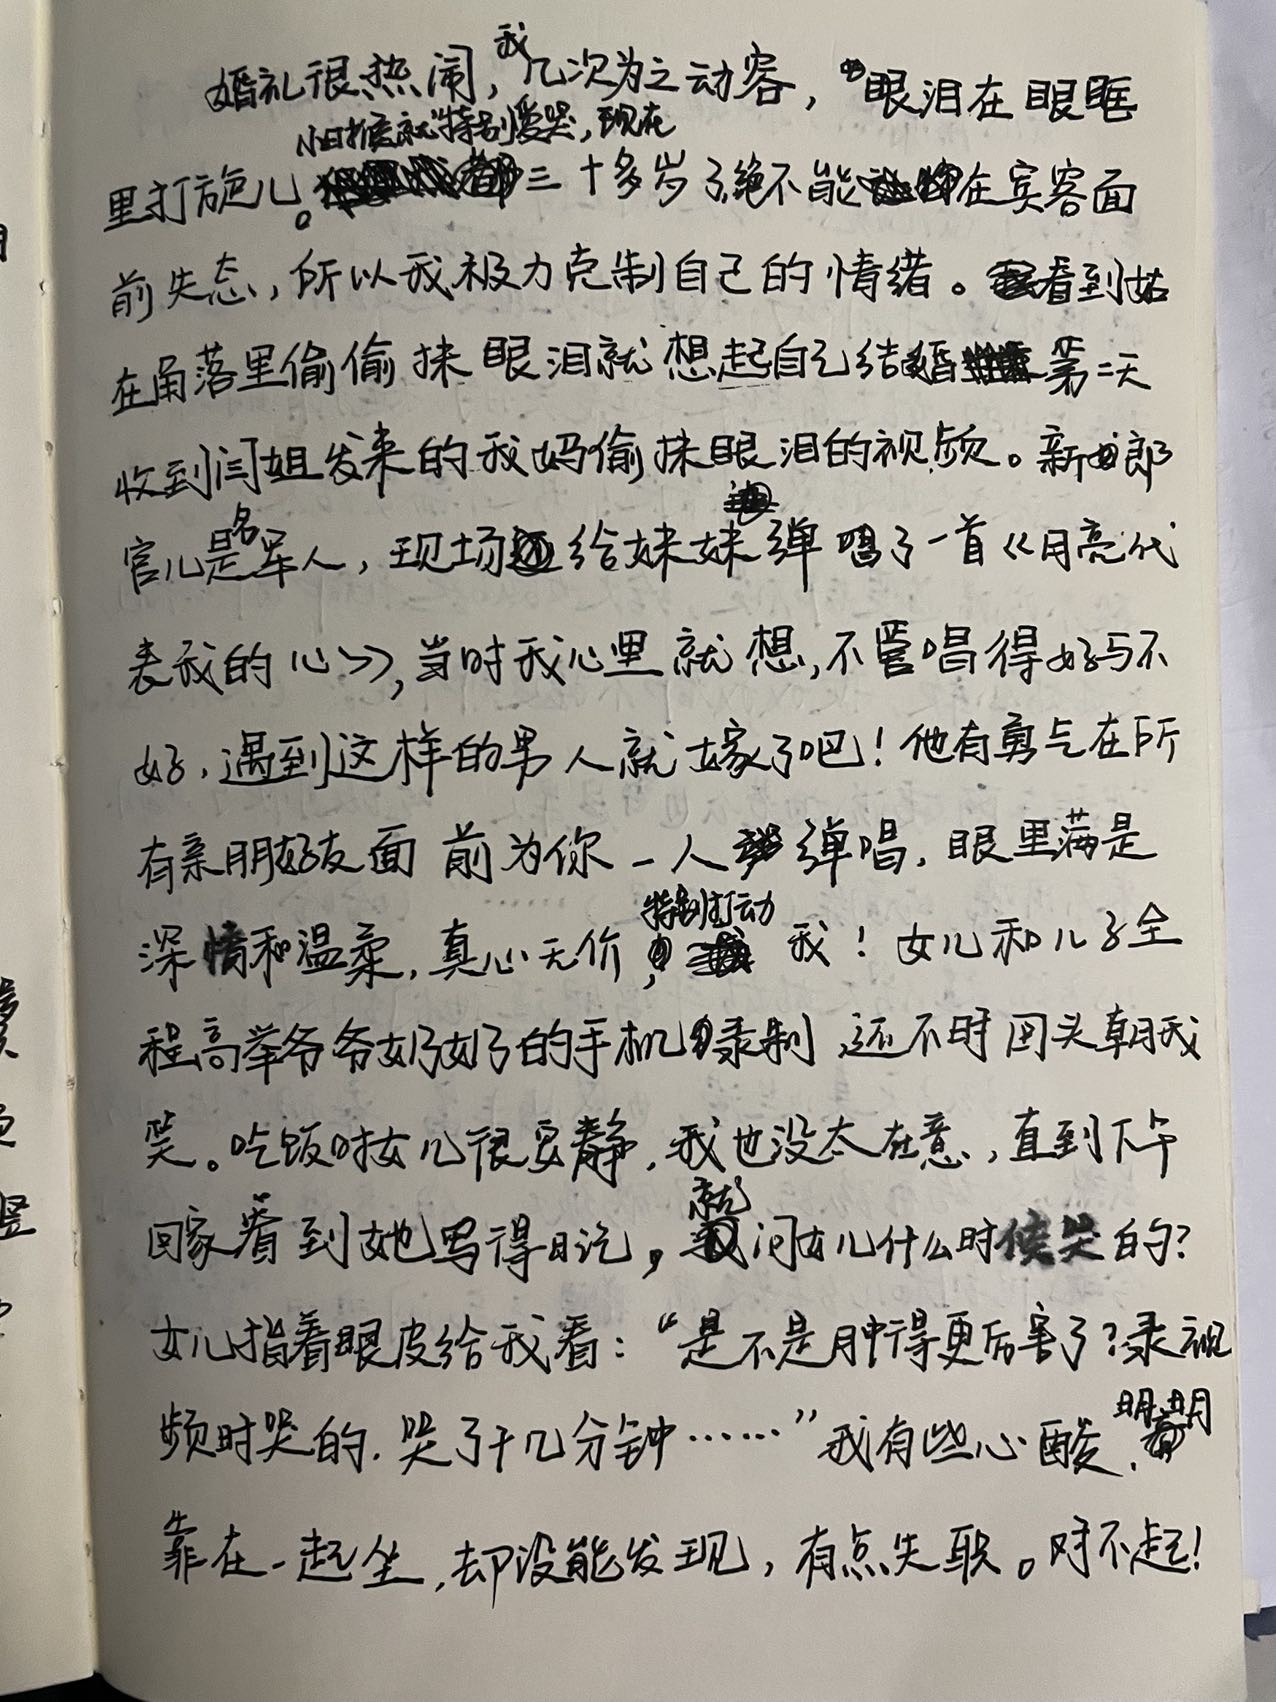 婚礼很热闹，我几次为之动容，眼泪在眼眶
小时候就特别爱哭，现在
里打旋儿。三十多岁了绝不能在宾客面
前失态，所以我极力克制自己的情绪。看到姑
在角落里偷偷抹眼泪就想起自己结婚第二天
收到闫姐发来的我妈偷抹眼泪的视频。新郎
官儿是名军人，现场给妹妹弹唱了一首《月亮代
表我的心》，当时我心里就想，不管唱得好与不
好，遇到这样的男人就嫁了吧！他有勇气在所
有亲朋好友面前为你一人弹唱，眼里满是
深情和温柔，真心无价，特别打动我！女儿和儿子全
程高举爷爷奶奶的手机录制，还不时回头朝我
笑。吃饭时女儿很安静，我也没太在意，直到下午
回家看到她写得日记，就问女儿什么时候哭的？
女儿指着眼皮给我看：“是不是肿得更厉害了？录视
频时哭的，哭了十几分钟……”我有些心酸，明明
靠在一起坐，却没能发现，有点失职。对不起！